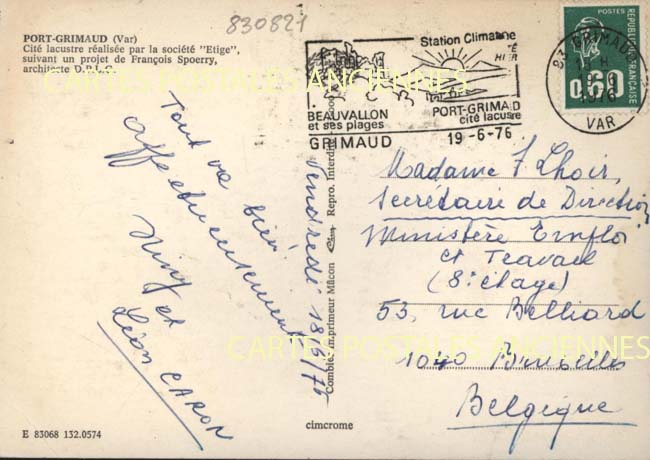 830821
PORT-GRIMAUD (Var)
Cité lacustre réalisée par la société "Etige",
suivant un projet de François Spoerry,
architecte D.P.L.G.
CARTES POSTALES ANCIENNES
Station Climat
ÉTÉ
HIVER
BEAUVALLON
et ses plages
PORT-GRIMAUD
cité lacustre
GRIMAUD
19-6-76
83 GRIMAUD
H
1976
VAR
POSTES
0,60
REPUBLIQUE FRANÇAISE
Tout va bien
affectueusement
et
Léon CARON
Vendredi 18/6/76
Combier imprimeur Mâcon Cim Repro. Interdite
Madame F Lhoir,
Secrétaire de Direction
Ministère Emploi
et Travail
(8e étage)
53, rue Belliard
1040 Bruxelles
Belgique
CARTES POSTALES ANCIENNES
cimcrome
E 83068 132.0574